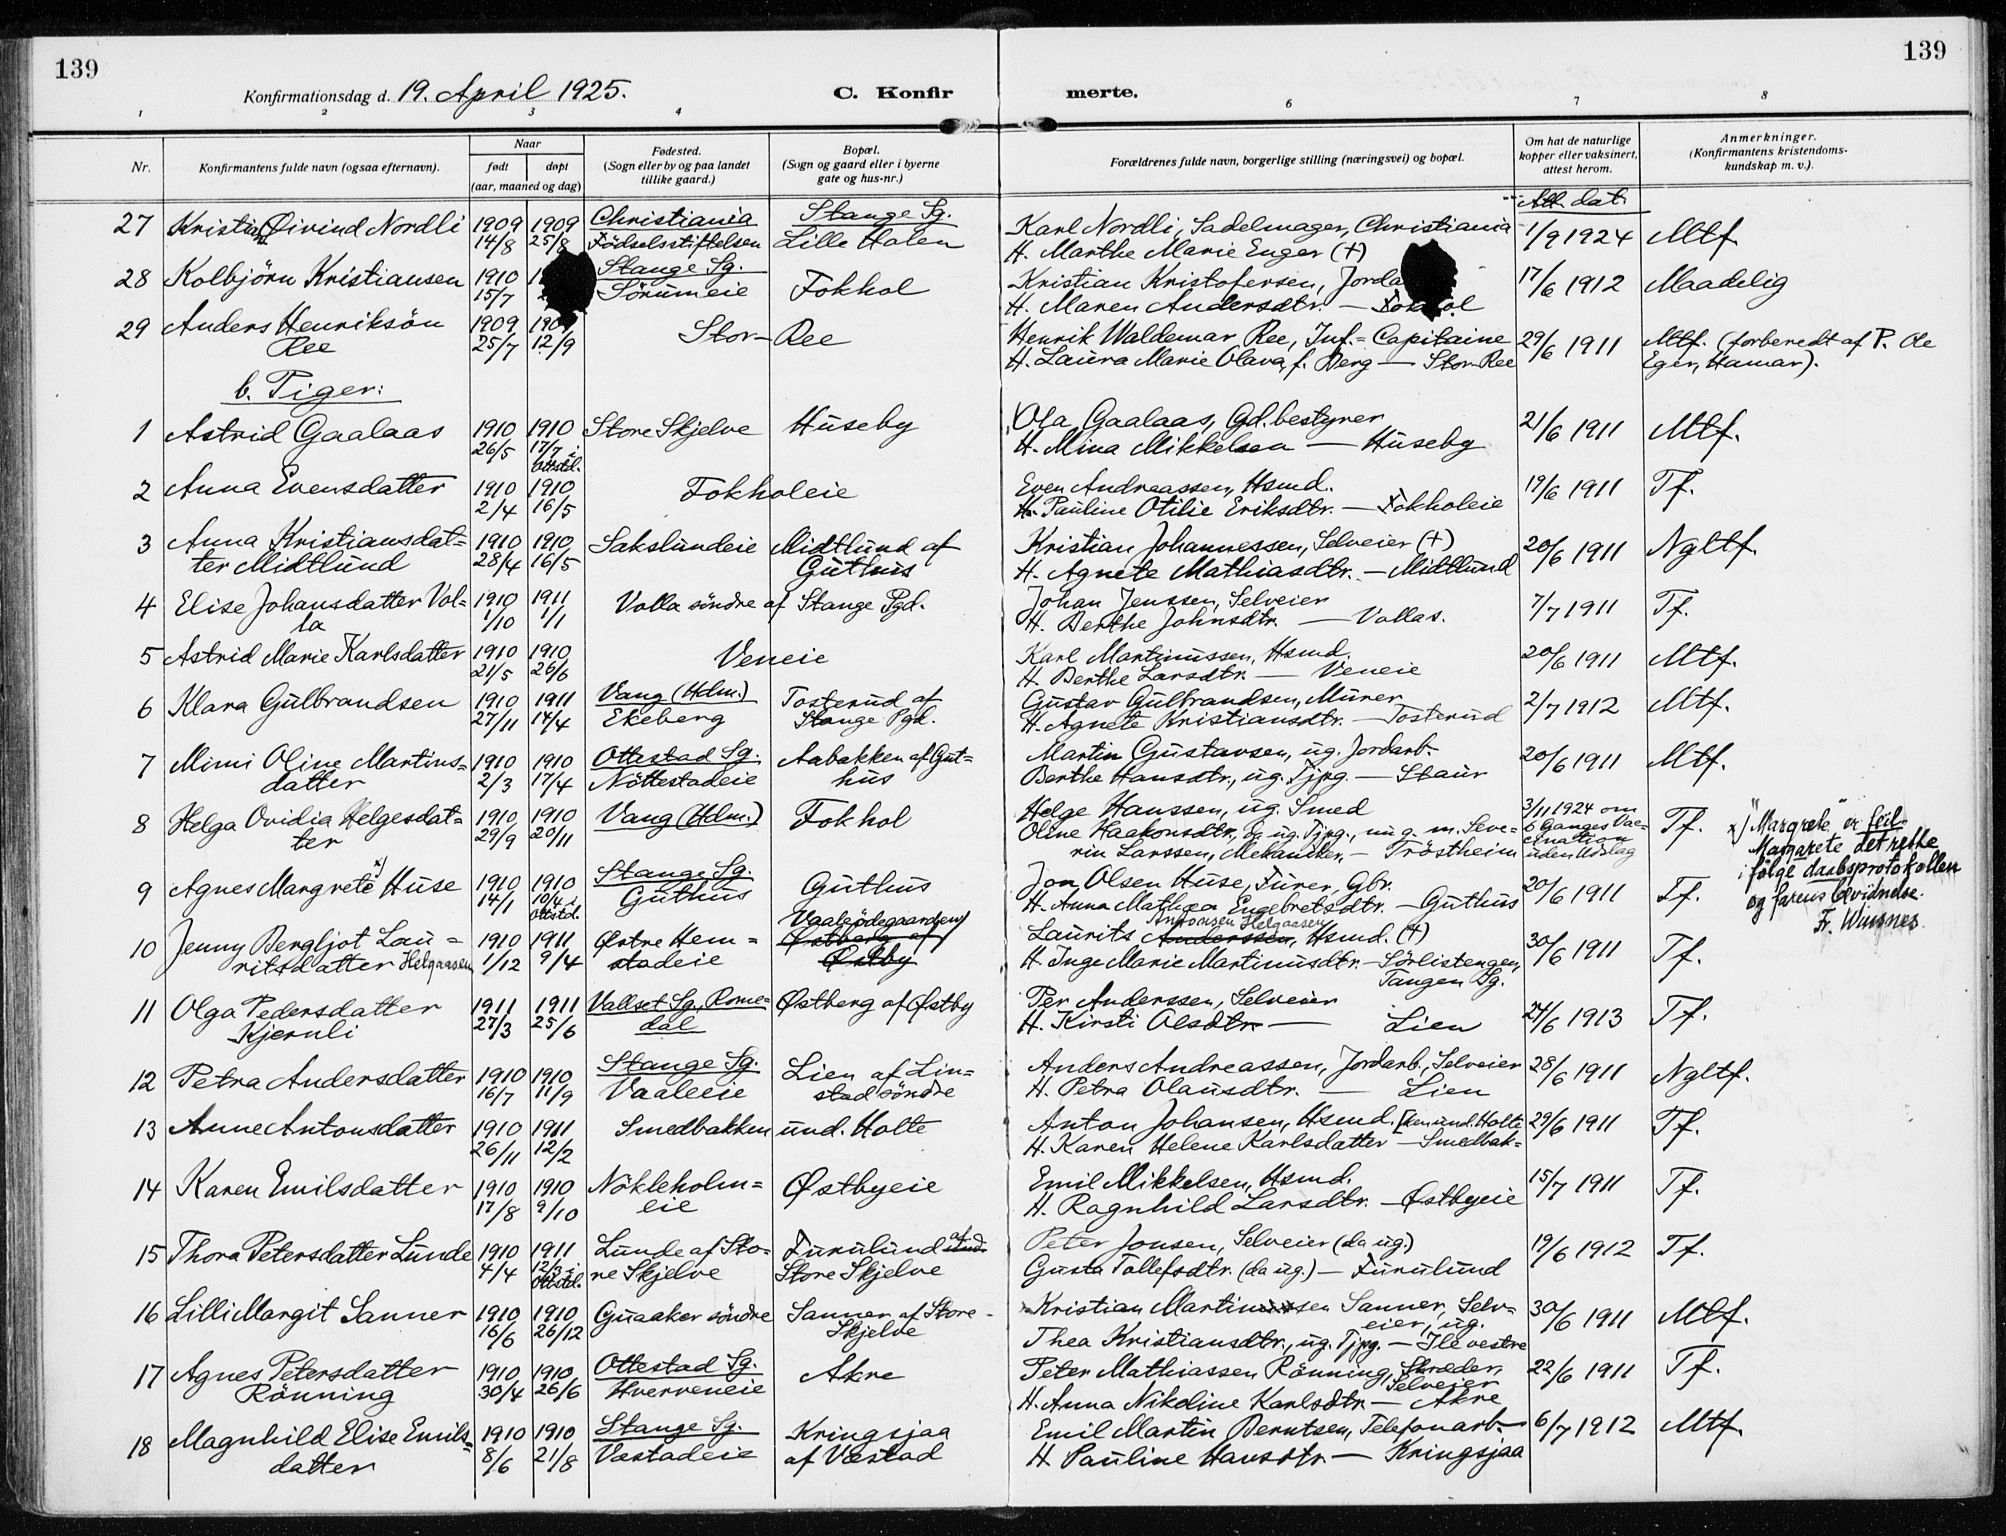 139
139
Konfirmationsdag d. 19. April 1925.
C. Konfirmerte.
1 2 3 4 6 7 8
Nr.
Konfirmantens fulde navn (ogsaa efternavn).
Naar
født døpt
(aar, maaned og dag)
Fødested.
(Sogn eller by og paa landet
tillike gaard.)
Bopæl.
(Sogn og gaard eller i byerne
gate og hus-nr.)
Forældrenes fulde navn, borgerlige stilling (næringsvei) og bopæl.
Om hat de naturlige
kopper eller vaksinert,
attest herom.
Anmerkninger.
(Konfirmantens kristendoms-
kundskap m. v.).
Att. dat.
27 Kristian Øivind Nordli 1909 1909 Christiania Stange Sg. Karl Nordli, Sadelmager, Christiania 1/9 1924 Mtf.
14/8 25/8 Fødselsstiftelsen Lille Halen H. Marthe Marie Enger (+)
28 Kolbjörn Kristiansen 1910 Stange Sg. Fokhol Kristian Kristofersen, 17/6 1912 Maadelig
15/7 Sörumeie H. Maren Andersdtr. —
29 Anders Henriksön 1909 1909 Stor-Ree Henrik Waldemar Ree, Inf.=Capitaine 29/6 1911 Mtf. (forberedt af P. de
Ree 25/7 12/9 H. Laura Marie Olava, f. Berg — Stor-Ree Eger, Hamar).
b. Piger:
1 Astrid Gaalaas 1910 1910 Store Skjelve Huseby Ola Gaalaas, Gd.bestyrer 21/6 1911 Mtf.
26/5 17/7 i Ottstd. H. Mina Mikkelsen — Huseby
2 Anna Evensdatter 1910 1910 Fokholeie Even Andreassen, Hsmd. 19/6 1911 Tf.
2/4 16/5 H. Pauline Otilie Eriksdtr. — Fokholeie
3 Anna Kristiansdat= 1910 1910 Sakslundeie Midtlund af Kristian Johannessen, Selveier (+) 20/6 1911 Ngltf.
ter Midtlund 28/4 16/5 Guthus H. Agnete Mathiasdtr. — Midtlund
4 Elise Johansdatter Vol= 1910 1911 Volla söndre af Stange Pgd. Johan Jenssen, Selveier 7/7 1911 Tf.
la 1/10 1/1 H. Berthe Johnsdtr. — Vollas.
5 Astrid Marie Karlsdatter 1910 1910 Veneie Karl Martinussen, Hsmd. 20/6 1911 Mtf.
21/5 26/6 H. Berthe Larsdtr. — Veneie
6 Klara Gulbrandsen 1910 1911 Vang (Hdm.) Tosterud af Gustav Gulbrandsen, Murer 2/7 1912 Mtf.
27/11 14/4 Ekeberg Stange Pgd. H. Agnete Kristiansdtr. — Tosterud
7 Mimi Oline Martins= 1910 1910 Ottestad Sg. Aabakken af Gut= Martin Gustavsen, ug. Jordarb. 20/6 1911 Mtf.
datter 2/3 17/4 Nöttestadeie hus Berthe Hansdtr., ug. Tjpg. — Staur
8 Helga Ovidia Helgesdat= 1910 1910 Vang (Hdm.) Fokhol Helge Hanssen, ug. Smed 3/11 1924 om Tf.
ter 29/9 20/11 Oline Haakonsdtr., da ug. Tjpg., nu g. m. Seve= 6 Ganges Vac=
rin Larssen, Mekaniker, — Tröstheim cination uden Udslag
x) "Margrete" er feil-
Margarete det rette
i følge daabsprotokollen
og farens bevidnelse.
9 Agnes Margrete x) Huse 1910 1910 Stange Sg. Guthus Jon Olsen Huse, Furer, Gbr. 20/6 1911 Tf.
14/1 10/4 i Ottstd. Guthus H. Anna Mathea Engebretsdtr. — Guthus
10 Jenny Bergljot Lau= 1910 1911 Østre Hem= Vaaleödegaarden Østberg af Laurits Anderssen, Antonsen Helgaasen Hsmd. (+) 30/6 1911 Tf.
ritsdatter Helgaasen 1/12 9/4 stadeie Østby H. Inge Marie Martinusdtr. — Sörlistengen,
Tangen Sg.
11 Olga Pedersdatter 1911 1911 Vallset Sg., Rome= Østberg af Østby Per Anderssen, Selveier 24/6 1913 Tf.
Kjernli 27/3 25/6 dal H. Kirsti Olsdtr. — Lien
12 Petra Andersdatter 1910 1910 Stange Sg. Lien af Lin= Anders Andreassen, Jordarb., Selveier 28/6 1911 Ngltf.
16/7 11/9 Vaaleeie stad söndre H. Petra Olausdtr. — Lien
13 Anne Antonsdatter 1910 1911 Smedbakken und. Holte Anton Johansen, Hsmd. [ken und. Holte 29/6 1911 Tf.
26/11 12/2 H. Karen Helene Karlsdatter — Smedbak=
14 Karen Emilsdatter 1910 1910 Nökleholm= Østbyeie Emil Mikkelsen, Hsmd. 15/7 1911 Tf.
17/8 9/10 eie H. Ragnhild Larsdtr. — Østbyeie
15 Thora Petersdatter Lunde 1910 1911 Lunde af Sto= Furulund Peter Jonsen, Selveier (da ug.) 19/6 1912 Tf.
4/4 12/3 i Ottstd. re Skjelve Store Skjelve Gusta Tollefsdtr. (da ug.) — Furulund
16 Lilli Margit Sanner 1910 1910 Guaaker söndre Sanner af Store Kristian Martinussen Sanner, Selv= 30/6 1911 Mtf.
16/6 26/12 Skjelve eier, ug.
Thea Kristiansdtr., ug. Tjpg. — Ile vestre
17 Agnes Petersdatter 1910 1910 Ottestad Sg. Akre Peter Mathiassen Rönning, Skræder, 22/6 1911 Tf.
Rönning 30/4 26/6 Hverveneie Selveier
H. Anna Nikoline Karlsdtr — Akre
18 Magnhild Elise Emils= 1910 1910 Stange Sg. Kringsjaa Emil Martin Berntsen, Telefonarb. 6/7 1912 Mtf.
datter 8/6 21/8 Væstadeie af Væstad H. Pauline Hansdtr. — Kringsjaa